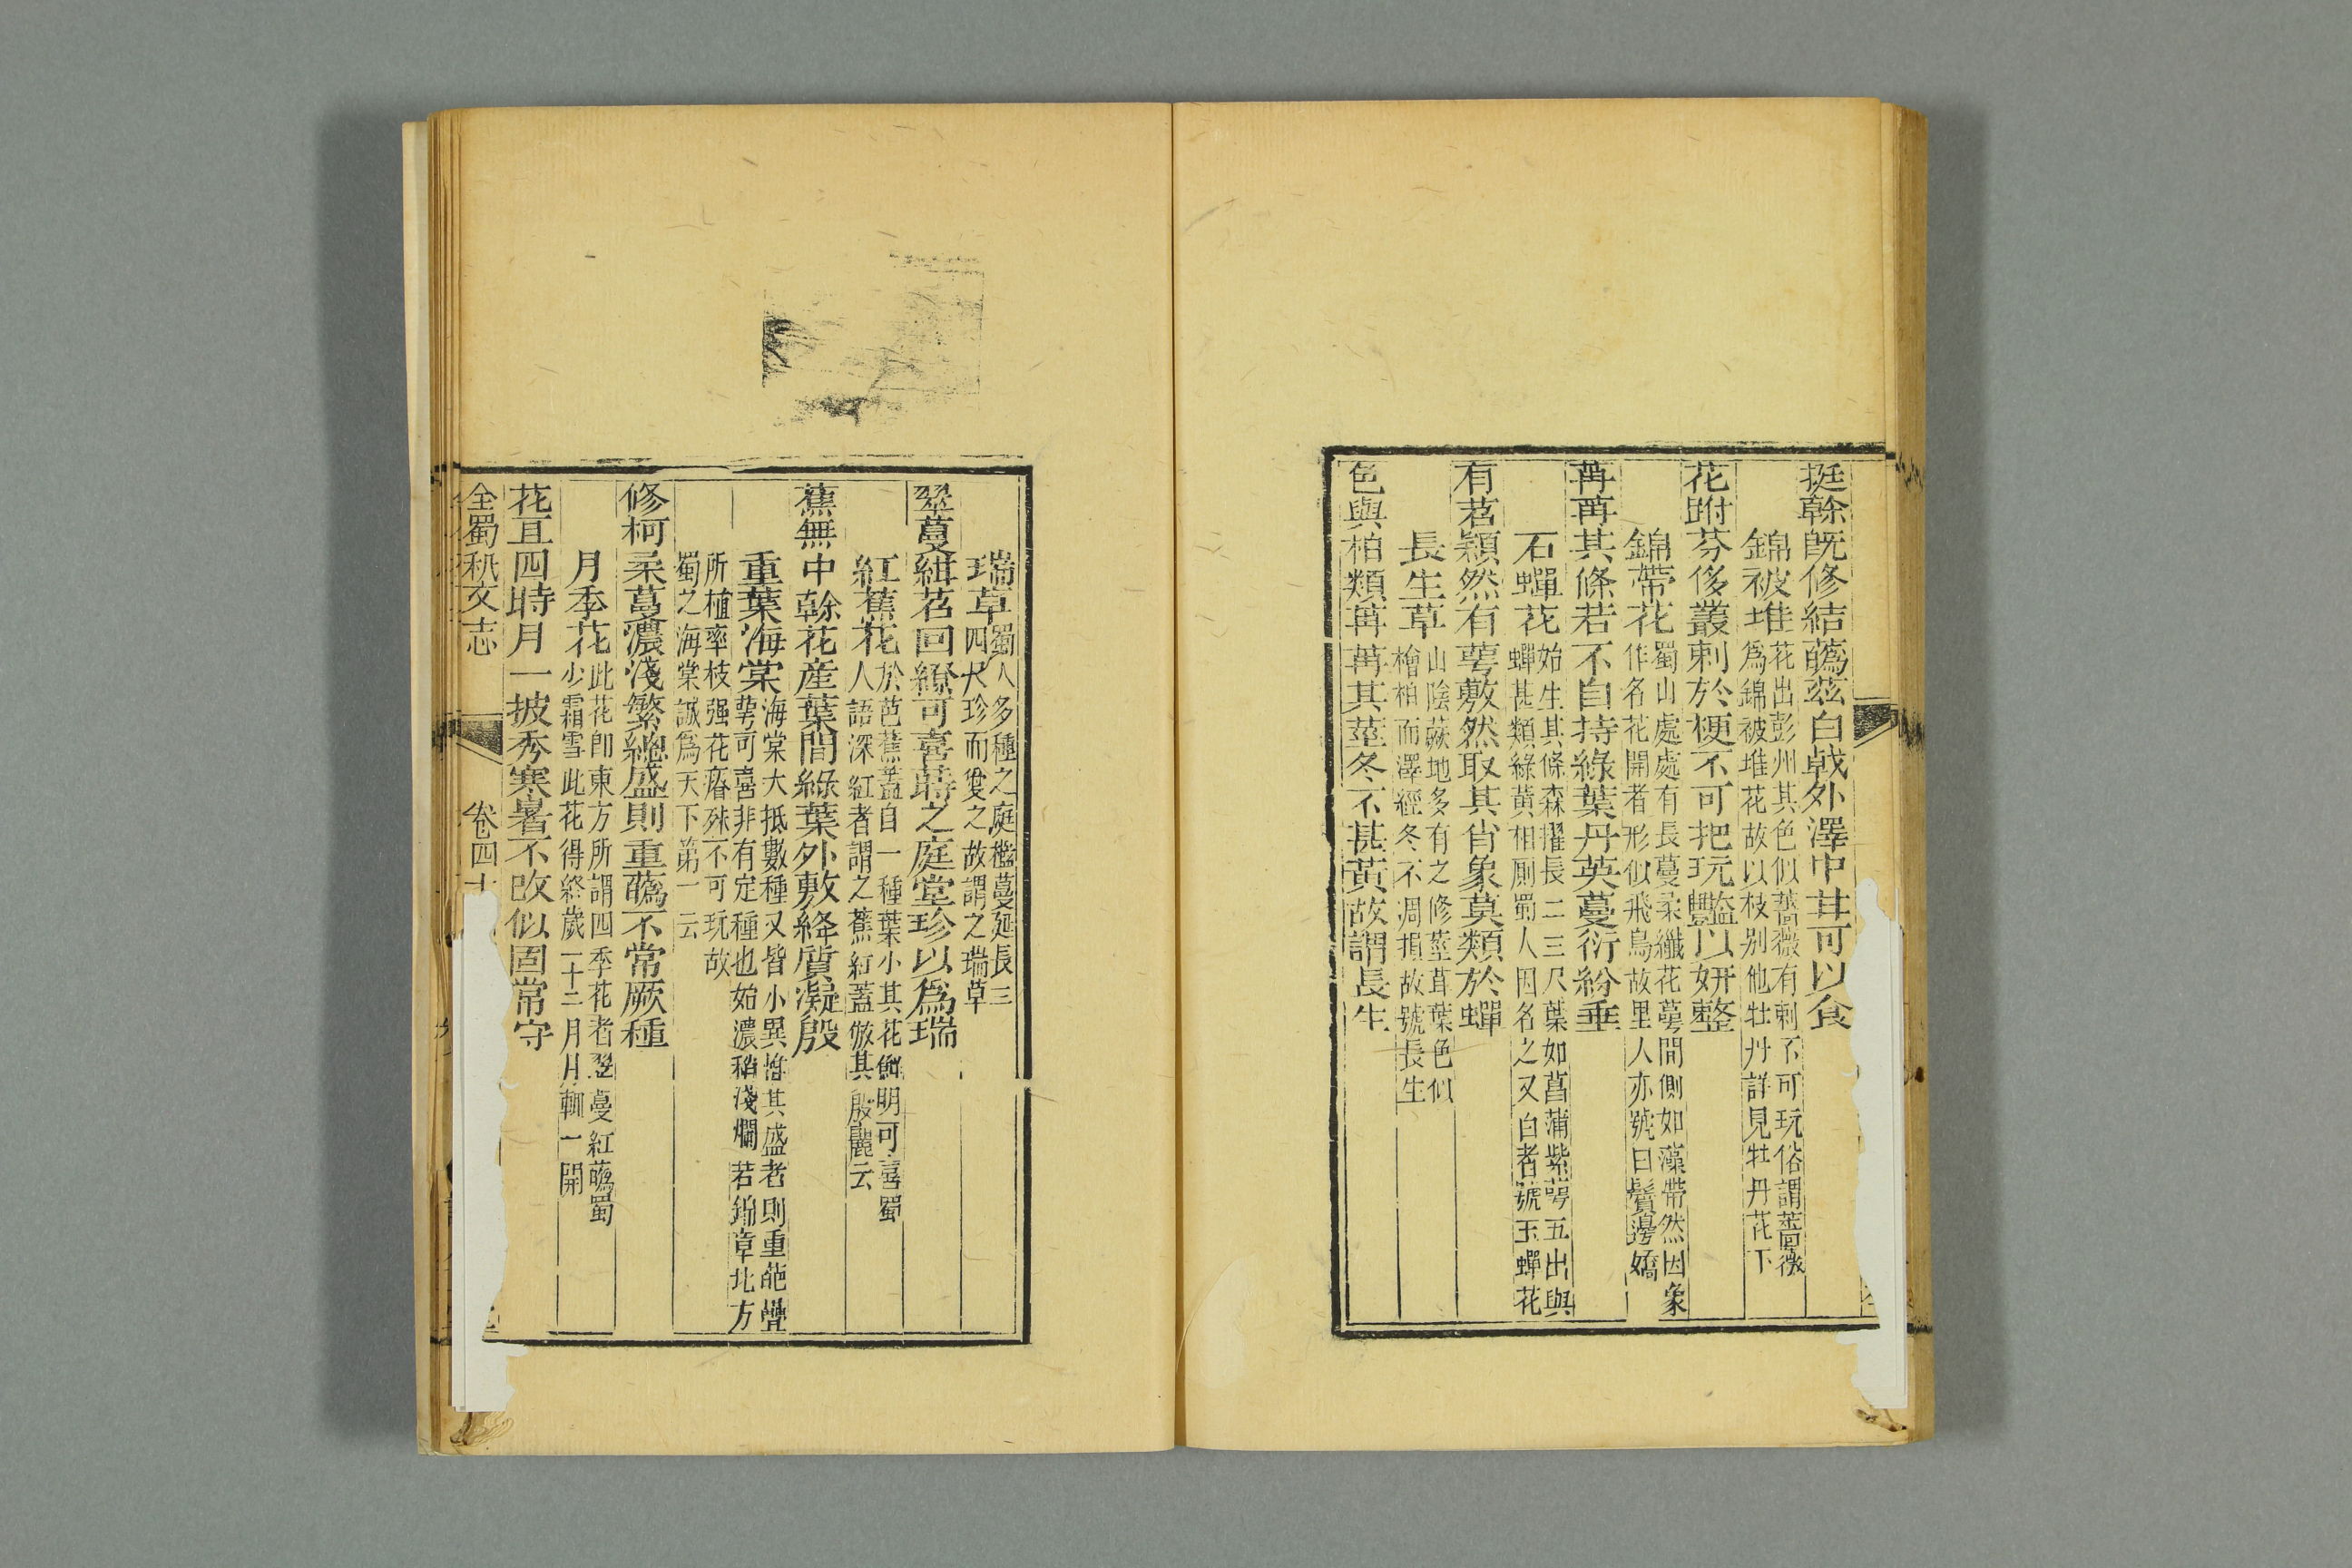 挺榦旣修結蘤茲白戟外澤中甘可以食
錦被堆花出彭州其色似薔薇有刺不可玩俗謂薔薇
爲錦被堆花故以枝别他牡丹詳見牡丹花下
花跗芬侈叢刺於梗不可把玩豔以妍整
錦帶花蜀山處處有長蔓柔纖花蕚間側如藻帶然因象
作名花開者形似飛鳥故里人亦號曰鬢邊嬌
苒苒其條若不自持綠葉丹英蔓衍紛垂
石蟬花始生其條森擢長二三尺葉如菖蒲紫蕚五出與
蟬甚類綠黃相厠蜀人因名之又白者號玉蟬花
有茗穎然有蕚敷然取其肖象莫類於蟬
長生草山陰蕨地多有之修莖茸葉色似
檜柏而澤經冬不凋損故號長生
色與柏類苒苒其莖冬不甚黃故謂長生
瑞草蜀人多種之庭檻蔓延長三
四尺珍而愛之故謂之瑞草
翠蔓緝茗回繚可喜蒔之庭堂珍以爲瑞
紅蕉花於芭蕉蓋自一種葉小其花鮮明可喜蜀
人語深紅者謂之蕉紅蓋倣其殷麗云
蕉無中榦花產葉間綠葉外敷絳質凝殷
重葉海棠海棠大抵數種又皆小異惟其盛者則重葩疊
蕚可喜非有定種也始濃稍淺爛若錦章北方
所植率枝强花瘠殊不可玩故
蜀之海棠誠爲天下第一云
修柯柔蔓濃淺繁總盛則重蘤不常厥種
月季花此花卽東方所謂四季花者翠蔓紅蘤蜀
少霜雪此花得終歲十二月月輒一開
花亘四時月一披秀寒暑不改似固常守
全蜀秇文志 卷四十